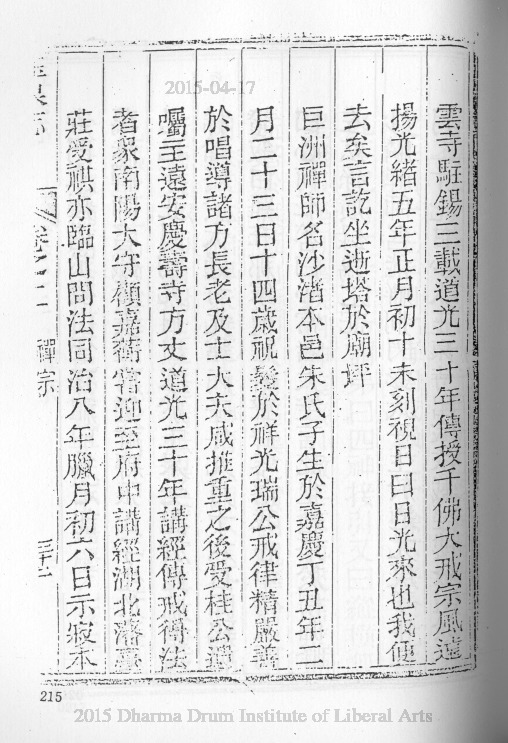 2015-04-17
雲寺駐錫三載道光三十年傳授千佛大戒宗風遠
揚光緒五年正月初十未刻視日曰日光來也我便
去矣言訖坐逝塔於廟坪
巨洲禪師名沙渚本邑朱氏子生於嘉慶丁丑年二
月二十三日十四歲祝髮於祥光瑞公戒律精嚴善
於唱導諸方長老及士大夫咸推重之後受桂公遺
囑主遠安慶壽寺方丈道光三十年講經傳戒得法
者衆南陽大守顧嘉蘅嘗迎至府中講經湖北藩臺
莊受祺亦臨山問法同治八年臘月初六日示寂本
卷之二 禪宗 三十二
215
2015 Dharma Drum Institute of Liberal Arts